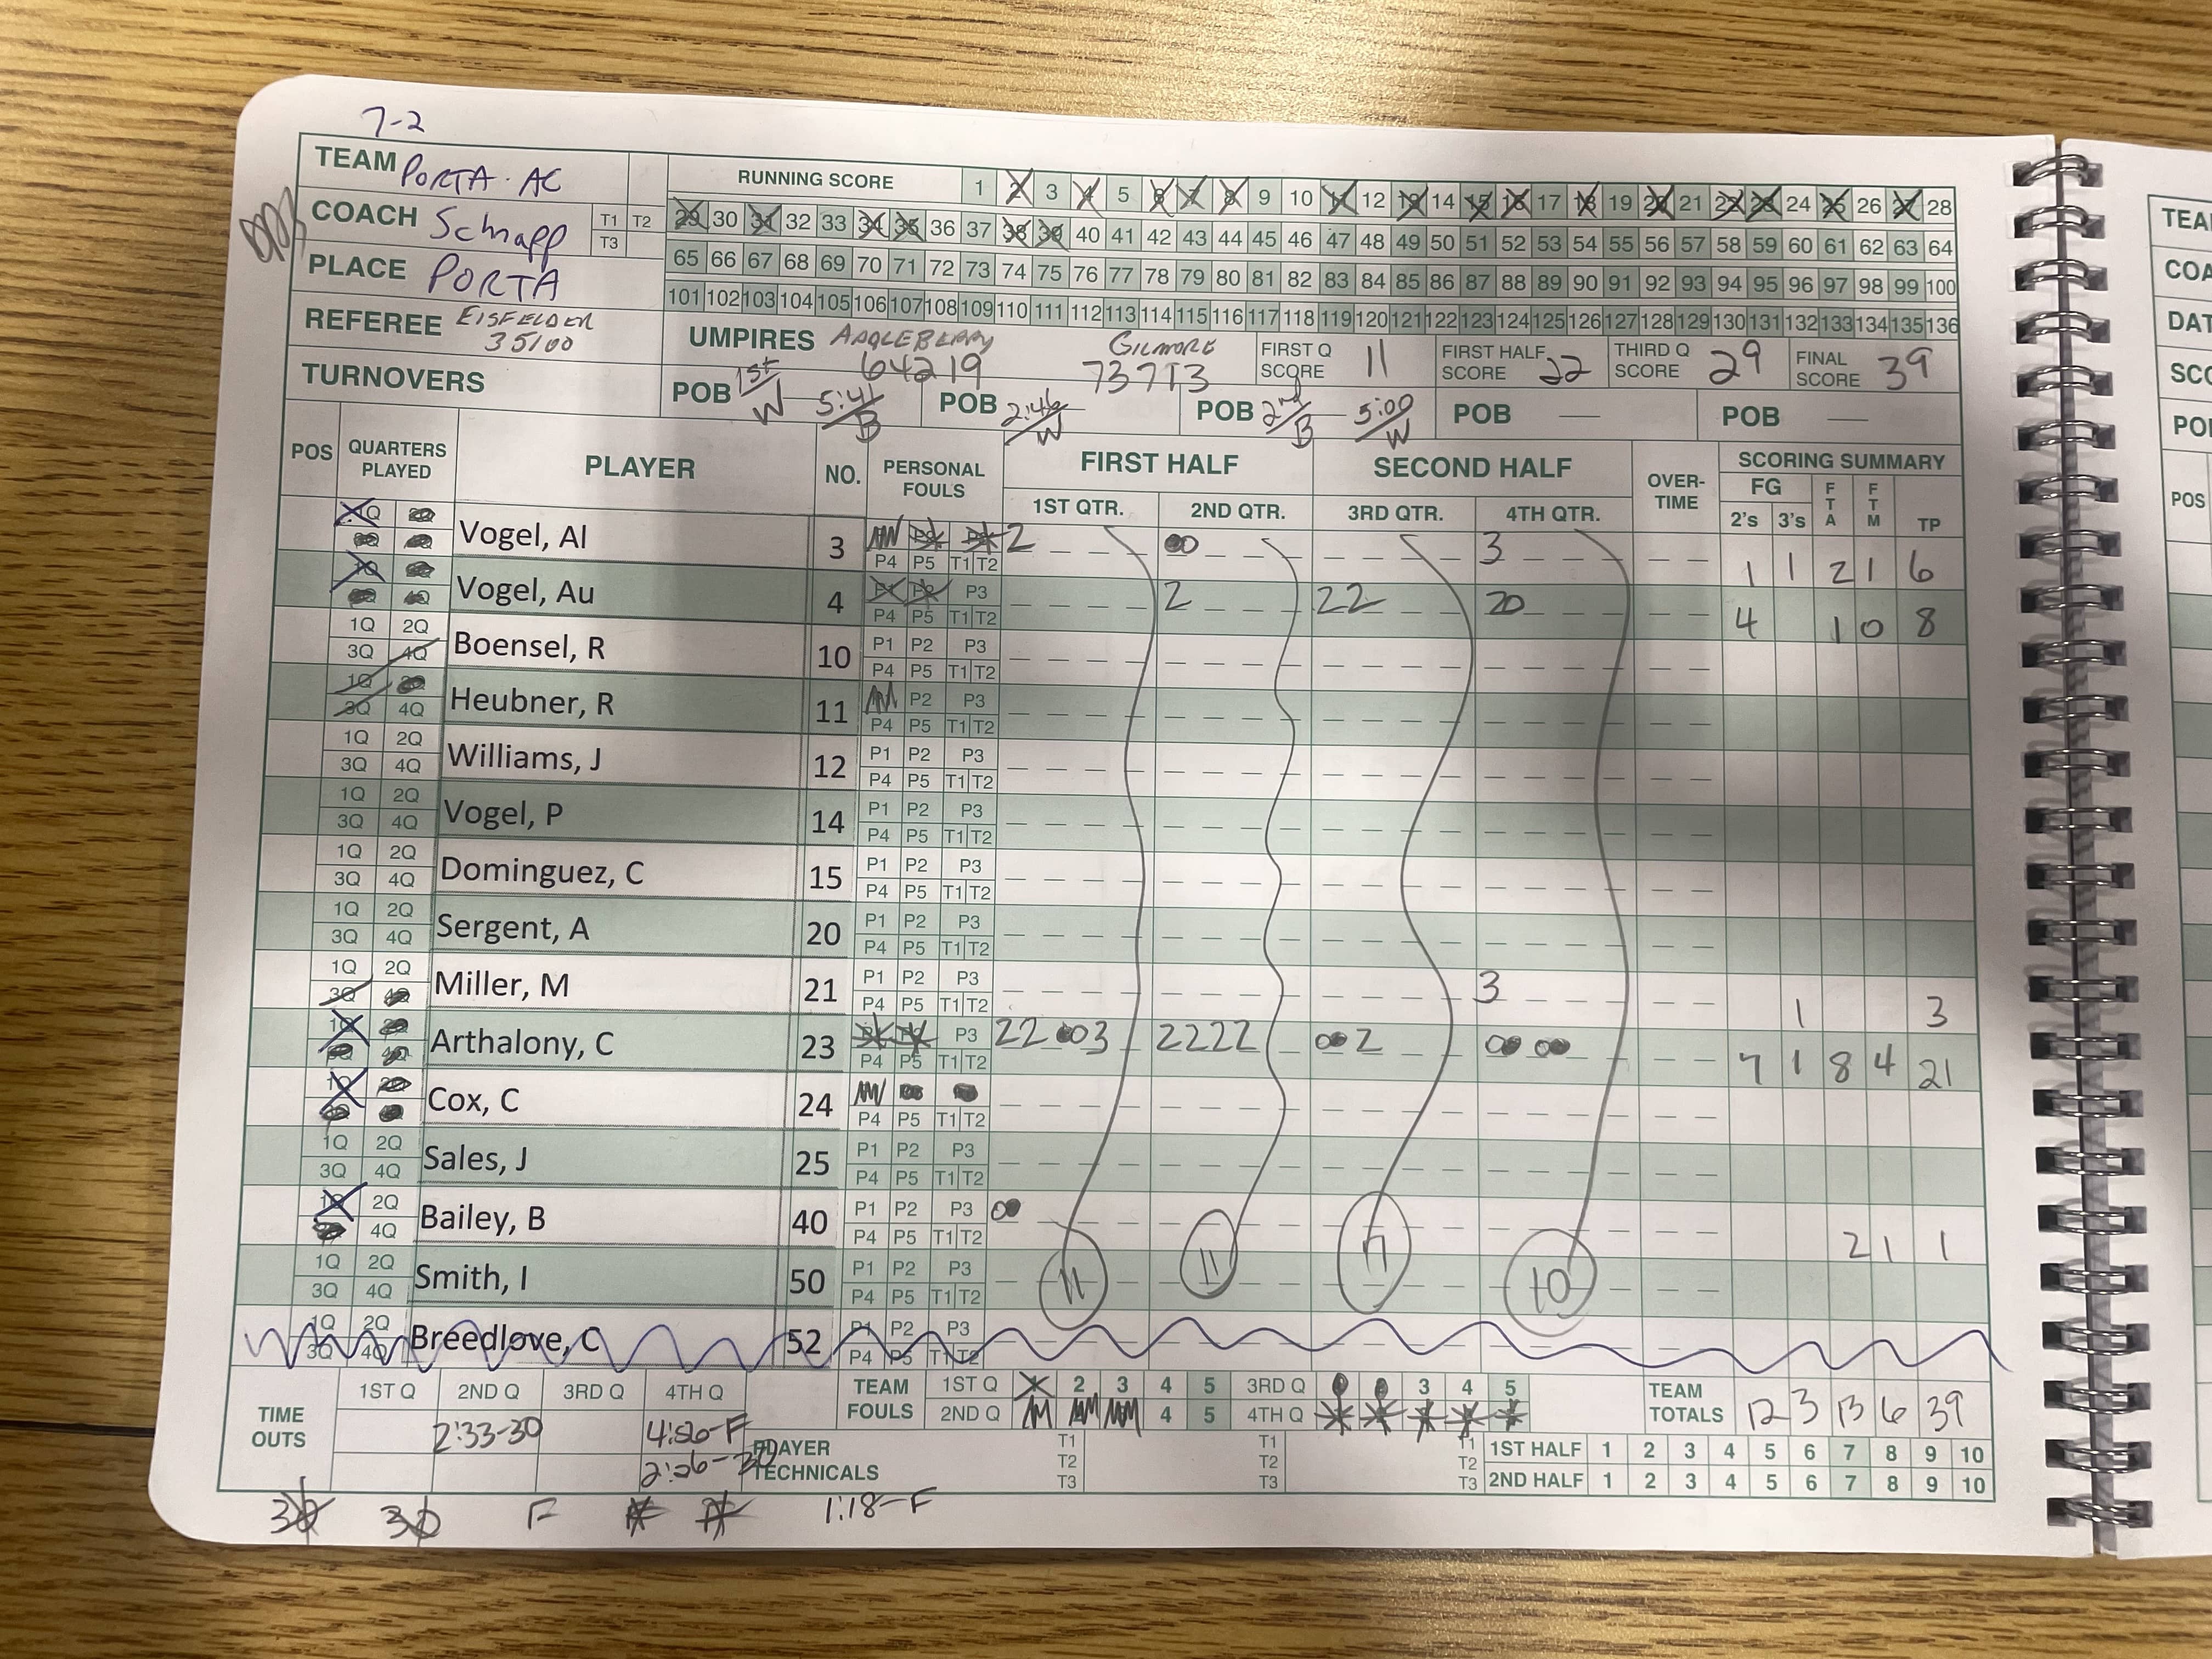 7-2
TEAM PORTA - AC
RUNNING SCORE 1 2 3 4 5 6 7 8 9 10 11 12 13 14 15 16 17 18 19 20 21 22 23 24 25 26 27 28
COACH Schnapp T1 T2 T3
29 30 31 32 33 34 35 36 37 38 39 40 41 42 43 44 45 46 47 48 49 50 51 52 53 54 55 56 57 58 59 60 61 62 63 64
PLACE PORTA
65 66 67 68 69 70 71 72 73 74 75 76 77 78 79 80 81 82 83 84 85 86 87 88 89 90 91 92 93 94 95 96 97 98 99 100
101 102 103 104 105 106 107 108 109 110 111 112 113 114 115 116 117 118 119 120 121 122 123 124 125 126 127 128 129 130 131 132 133 134 135 136
REFEREE EISFELDER 35100
UMPIRES APPLEBERRY 64219 GILMORE 73713
FIRST Q SCORE 11 FIRST HALF SCORE 22 THIRD Q SCORE 29 FINAL SCORE 39
TURNOVERS
POB 1st/W 5:41/B POB 2:46/W POB 2nd/B 5:00/W POB — POB —
POS QUARTERS PLAYED PLAYER NO. PERSONAL FOULS FIRST HALF SECOND HALF OVER-TIME SCORING SUMMARY
1ST QTR. 2ND QTR. 3RD QTR. 4TH QTR. FG 2's 3's FTA FTM TP
Vogel, Al 3 P4 P5 T1 T2 2 3 1 1 2 1 6
Vogel, Au 4 P3 P4 P5 T1 T2 2 22 20 4 1 0 8
1Q 2Q 3Q 4Q Boensel, R 10 P1 P2 P3 P4 P5 T1 T2
1Q 3Q 4Q Heubner, R 11 P2 P3 P4 P5 T1 T2
1Q 2Q 3Q 4Q Williams, J 12 P1 P2 P3 P4 P5 T1 T2
1Q 2Q 3Q 4Q Vogel, P 14 P1 P2 P3 P4 P5 T1 T2
1Q 2Q 3Q 4Q Dominguez, C 15 P1 P2 P3 P4 P5 T1 T2
1Q 2Q 3Q 4Q Sergent, A 20 P1 P2 P3 P4 P5 T1 T2
1Q 2Q 3Q 4Q Miller, M 21 P1 P2 P3 P4 P5 T1 T2 3 1 3
Arthalony, C 23 P3 P4 P5 T1 T2 22 3 2222 2 7 1 8 4 21
Cox, C 24 P4 P5 T1 T2
1Q 2Q 3Q 4Q Sales, J 25 P1 P2 P3 P4 P5 T1 T2
1Q 2Q 4Q Bailey, B 40 P1 P2 P3 P4 P5 T1 T2 2 1 1
1Q 2Q 3Q 4Q Smith, I 50 P1 P2 P3 P4 P5 T1 T2 11 11 7 10
1Q 2Q 3Q 4Q Breedlove, C 52 P1 P2 P3 P4 P5 T1 T2
TIME OUTS 1ST Q 2ND Q 3RD Q 4TH Q
2:33-30 4:56-F
2:26-30
TEAM FOULS 1ST Q 2 3 4 5 3RD Q 3 4 5
2ND Q 4 5 4TH Q
TEAM TOTALS 12 3 13 6 39
PLAYER TECHNICALS T1 T2 T3 T1 T2 T3 T1 T2 T3
1ST HALF 1 2 3 4 5 6 7 8 9 10
2ND HALF 1 2 3 4 5 6 7 8 9 10
30 30 F 1:18-F
TEA
COA
DAT
SCO
PO
POS